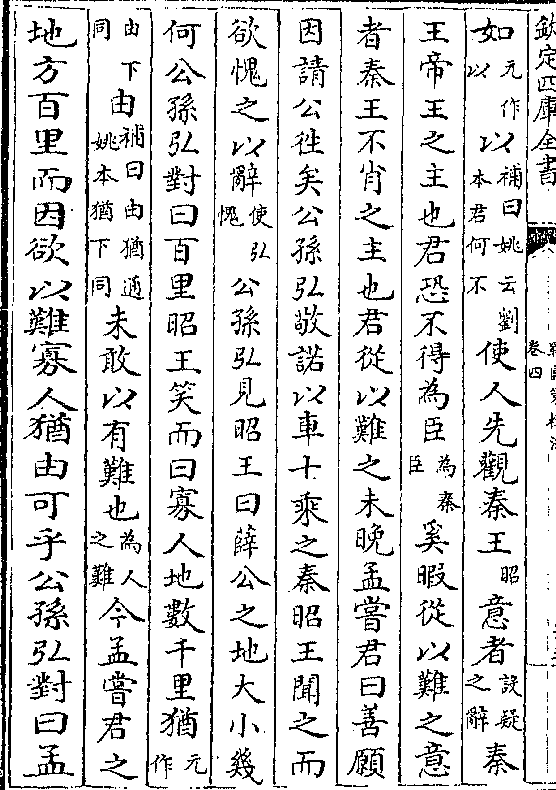 欽定四庫全書
卷四
如元作以以補曰姚云劉本君何不使人先觀秦王昭意者設疑之辭秦
王帝王之主也君恐不得為臣為秦臣奚暇從以難之意
者秦王不肖之主也君從以難之未晚孟嘗君曰善願
因請公徃矣公孫弘敬諾以車十乘之秦昭王聞之而
欲愧之以辭使弘愧公孫弘見昭王曰薛公之地大小幾
何公孫弘對曰百里昭王笑而曰寡人地數千里猶元作
由下同由補曰由猶通姚本猶下同未敢以有難也為人之難今孟嘗君之
地方百里而因欲以難寡人猶由可乎公孫弘對曰孟